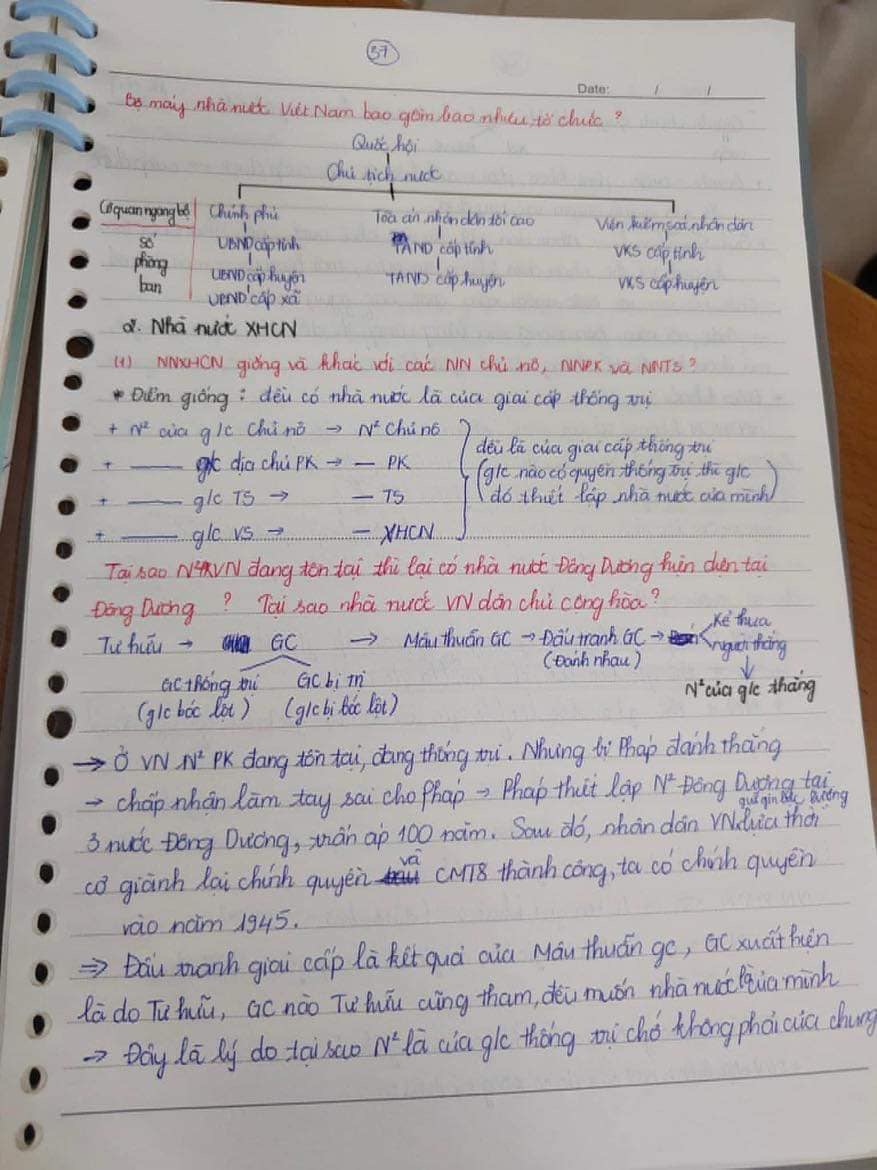 37
Date: / /
Bộ máy nhà nước Việt Nam bao gồm bao nhiêu tổ chức ?
Quốc hội
Chủ tịch nước
Cơ quan ngang bộ
sở
phòng
ban
Chính phủ
UBND cấp tỉnh
UBND cấp huyện
UBND cấp xã
Tòa án nhân dân tối cao
TAND cấp tỉnh
TAND cấp huyện
Viện kiểm soá nhân dân
VKS cấp tỉnh
VKS cấp huyện
2. Nhà nước XHCN
(1) NNXHCN giống và khác với các NN chủ nô, NNPK và NNTS ?
* Điểm giống : đều có nhà nước là của giai cấp thống trị
+ N² của g/c Chủ nô → N² Chủ nô
+ —— g/c địa chủ PK → — PK
+ —— g/c TS → — TS
+ —— g/c VS → — XHCN
đều là của giai cấp thống trị
(g/c nào có quyền thống trị thì g/c
đó thiết lập nhà nước của mình)
Tại sao VN đang tồn tại thì lại có nhà nước Đông Dương hiện diện tại
Đông Dương ? Tại sao nhà nước VN dân chủ cộng hòa ?
Tư hữu → GC → Mâu thuẫn GC → Đấu tranh GC →
(Đánh nhau)
Kẻ thua
người thắng
N² của g/c thắng
GC thống trị GC bị trị
(g/c bóc lột) (g/c bị bóc lột)
→ Ở VN N² PK đang tồn tại, đang thống trị. Nhưng bị Pháp đánh thắng
→ chấp nhận làm tay sai cho Pháp → Pháp thiết lập N² Đông Dương tại
3 nước Đông Dương, trấn áp 100 năm. Sau đó, nhân dân VN dựa thời
cơ giành lại chính quyền và CMT8 thành công, ta có chính quyền
vào năm 1945.
⇒ Đấu tranh giai cấp là kết quả của Mâu thuẫn gc, GC xuất hiện
là do Tư hữu, GC nào Tư hữu cũng tham, đều muốn nhà nước là của mình
→ Đây là lý do tại sao N² là của g/c thống trị chớ không phải của chung